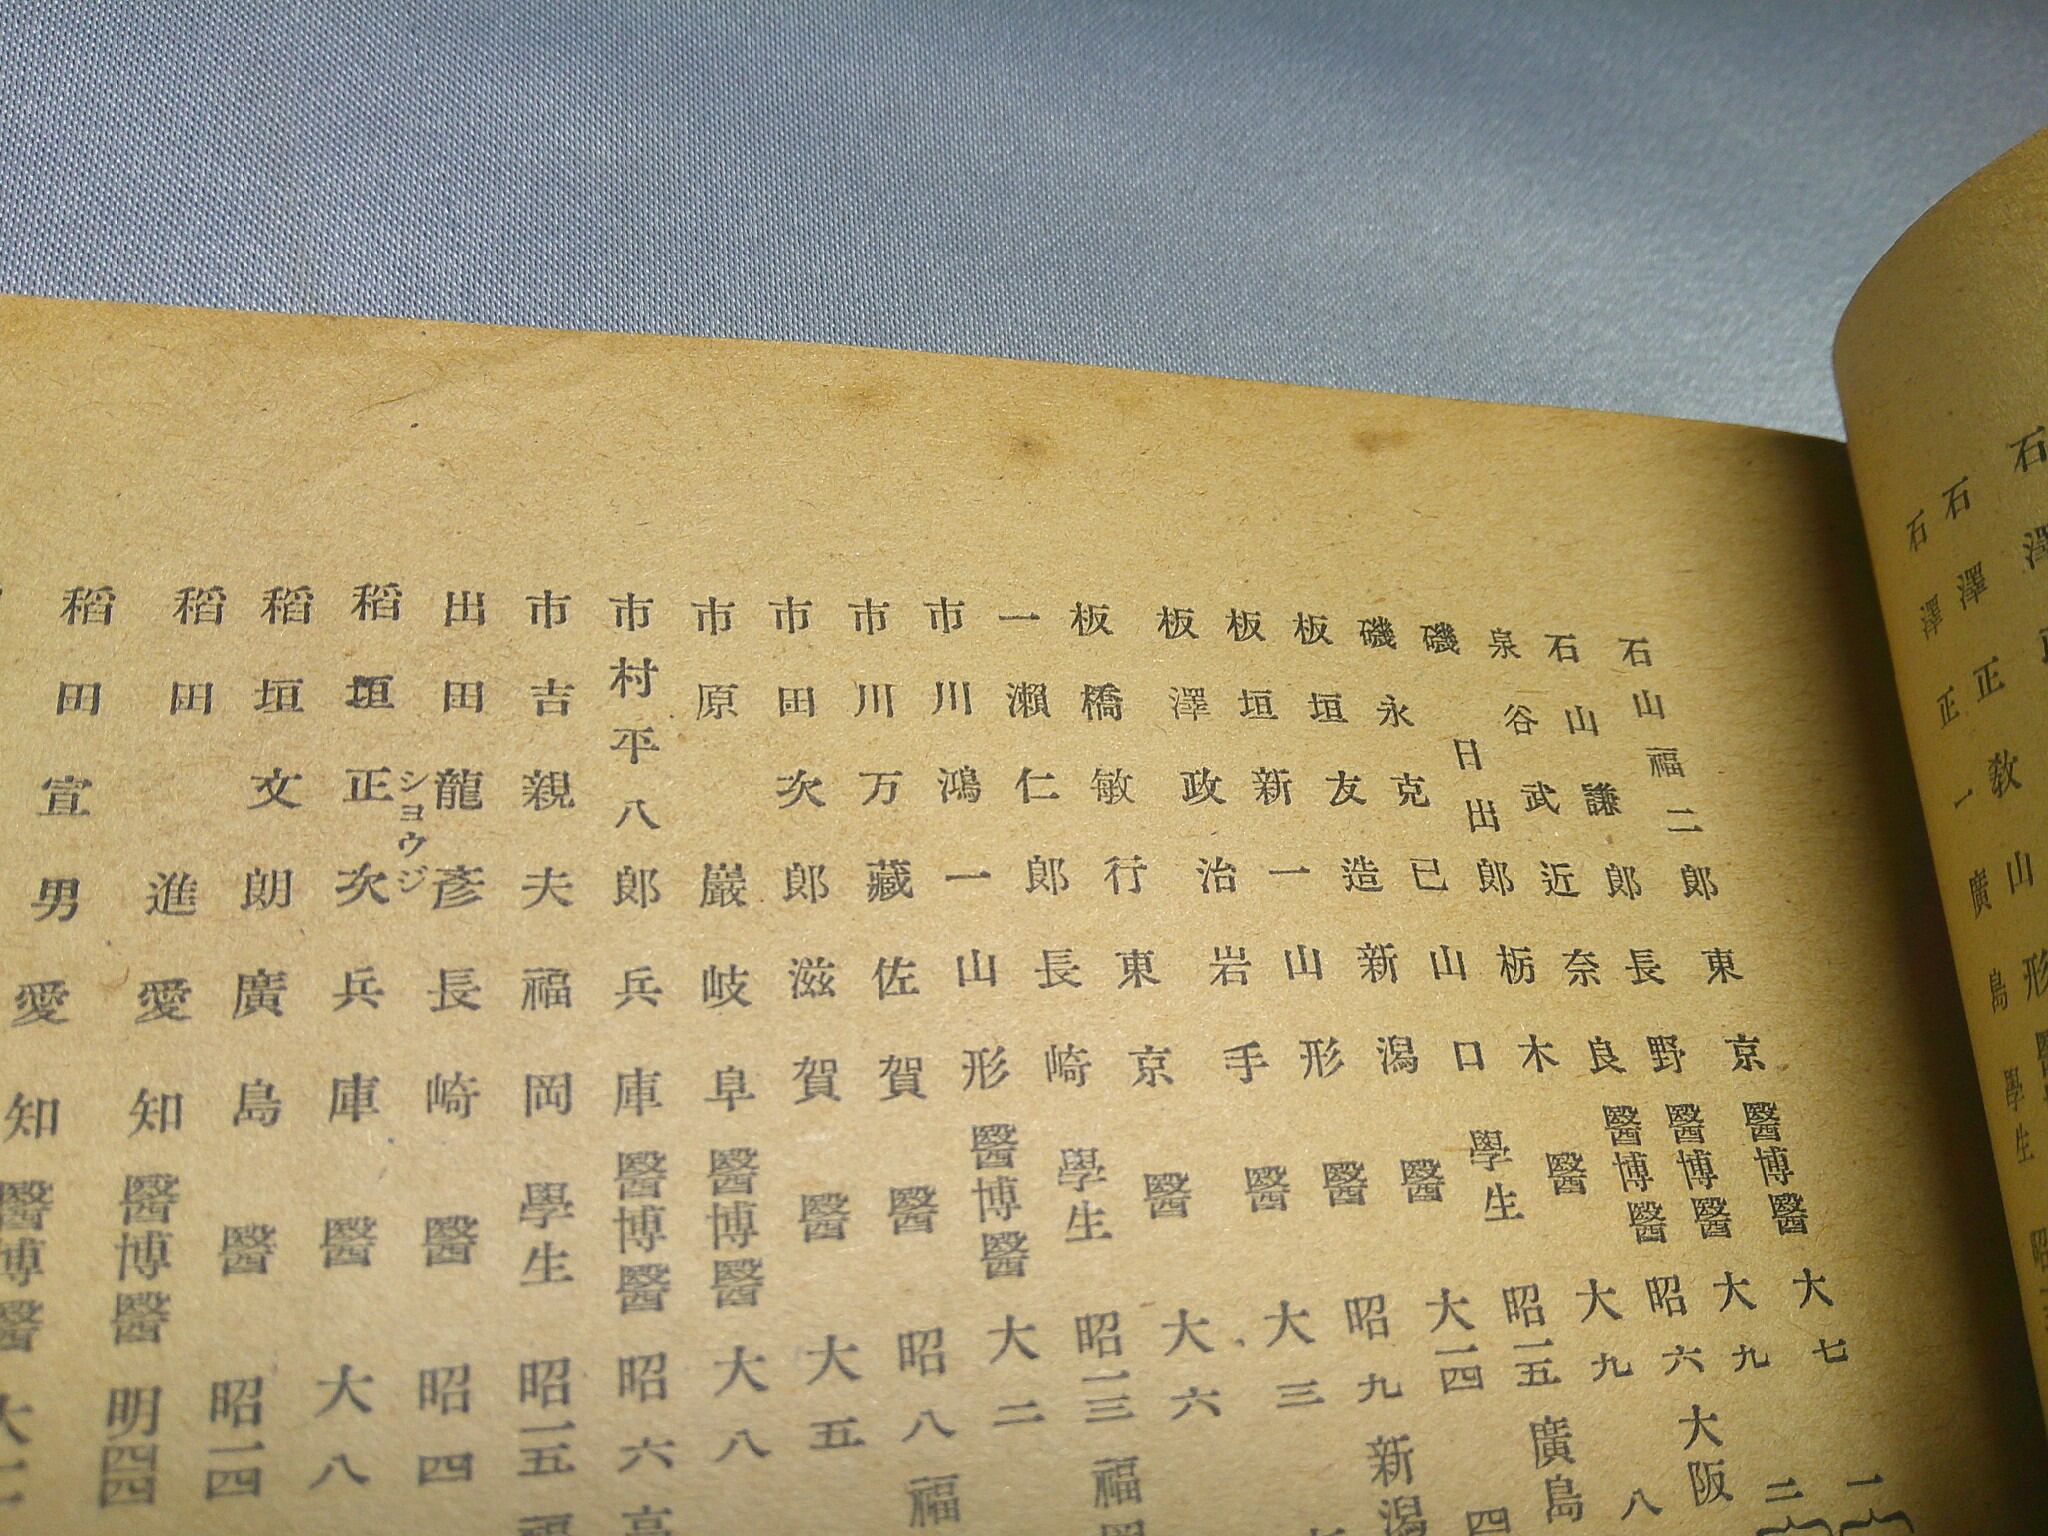 石澤正
石澤正教 山形
石澤正一 廣島 學生 昭
石山福二郎 東京 醫博醫 大七 一
石山謙郎 長野 醫博醫 大九 二
泉谷武近 奈良 醫博醫 昭六 大阪
磯日出郎 栃木 醫 大九 八
磯永克已 山口 學生 昭一五 廣島
板垣友造 新潟 醫 大一四 四
板垣新一 山形 醫 昭九 新潟
板澤政治 岩手 醫 大三
板橋敏行 東京 醫 大六
一瀨仁郎 長崎 學生 昭一三 福岡
市川鴻一 山形 醫博醫 大二
市川万藏 佐賀 醫 昭八 福
市田次郎 滋賀 醫 大五
市原巖 岐阜 醫博醫 大八
市村平八郎 兵庫 醫博醫 昭六 高
市吉親夫 福岡 學生 昭一五 福
出田龍彥 長崎 醫 昭四
ショウジ
稻垣正次 兵庫 醫 大八
稻垣文朗 廣島 醫 昭一四
稻田進 愛知 醫博醫 明四四
稻田宣男 愛知 醫博醫 大一